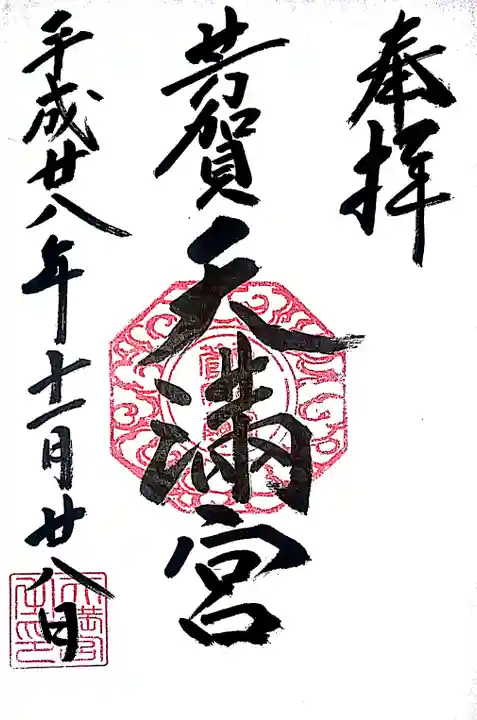 奉拝
芳賀天満宮
平成廿八年十一月廿八日